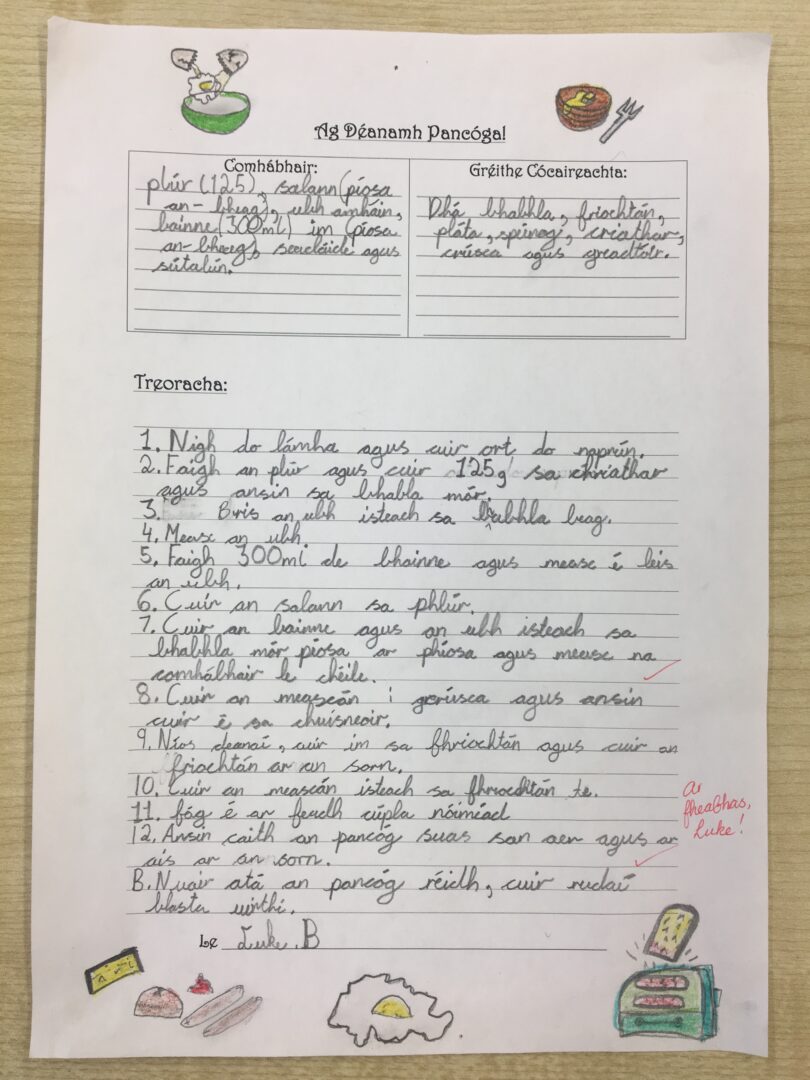 Ag Déanamh Pancóga!
Comhábhair:
plúr (125), salann (píosa
an-bheag), ubh amháin,
bainne (300ml) im (píosa
an-bheag), seacláide agus
sútalún.
Gréithe Cócaireachta:
Dhá bhabhla, friochtán,
pláta, spúnogí, criathar,
crúsca agus greadtóir.
Treoracha:
1. Nigh do lámha agus cuir ort do naprún.
2. Faigh an plúr agus cuir 125g sa chriathar
agus ansin sa bhabla mór.
3. Bris an ubh isteach sa babhla beag.
4. Measc an ubh.
5. Faigh 300ml de bhainne agus measc é leis
an ubh.
6. Cuir an salann sa phlúr.
7. Cuir an bainne agus an ubh isteach sa
bhabhla mór píosa ar phíosa agus measc na
comhábhair le chéile.
8. Cuir an meascán i gcrúsca agus ansin
cuir é sa chuisneoir.
9. Níos deanaí, cuir im sa fhriochtán agus cuir an
friochtán ar an sorn.
10. Cuir an meascán isteach sa fhriochtán te.
11. fág é ar feadh cúpla nóiméad
12. Ansin caith an pancóg suas san aer agus ar
ais ar an sorn.
13. Nuair atá an pancóg réidh, cuir rudaí
blasta uirthi.
Ar
fheabhas,
Luke!
Le Luke. B